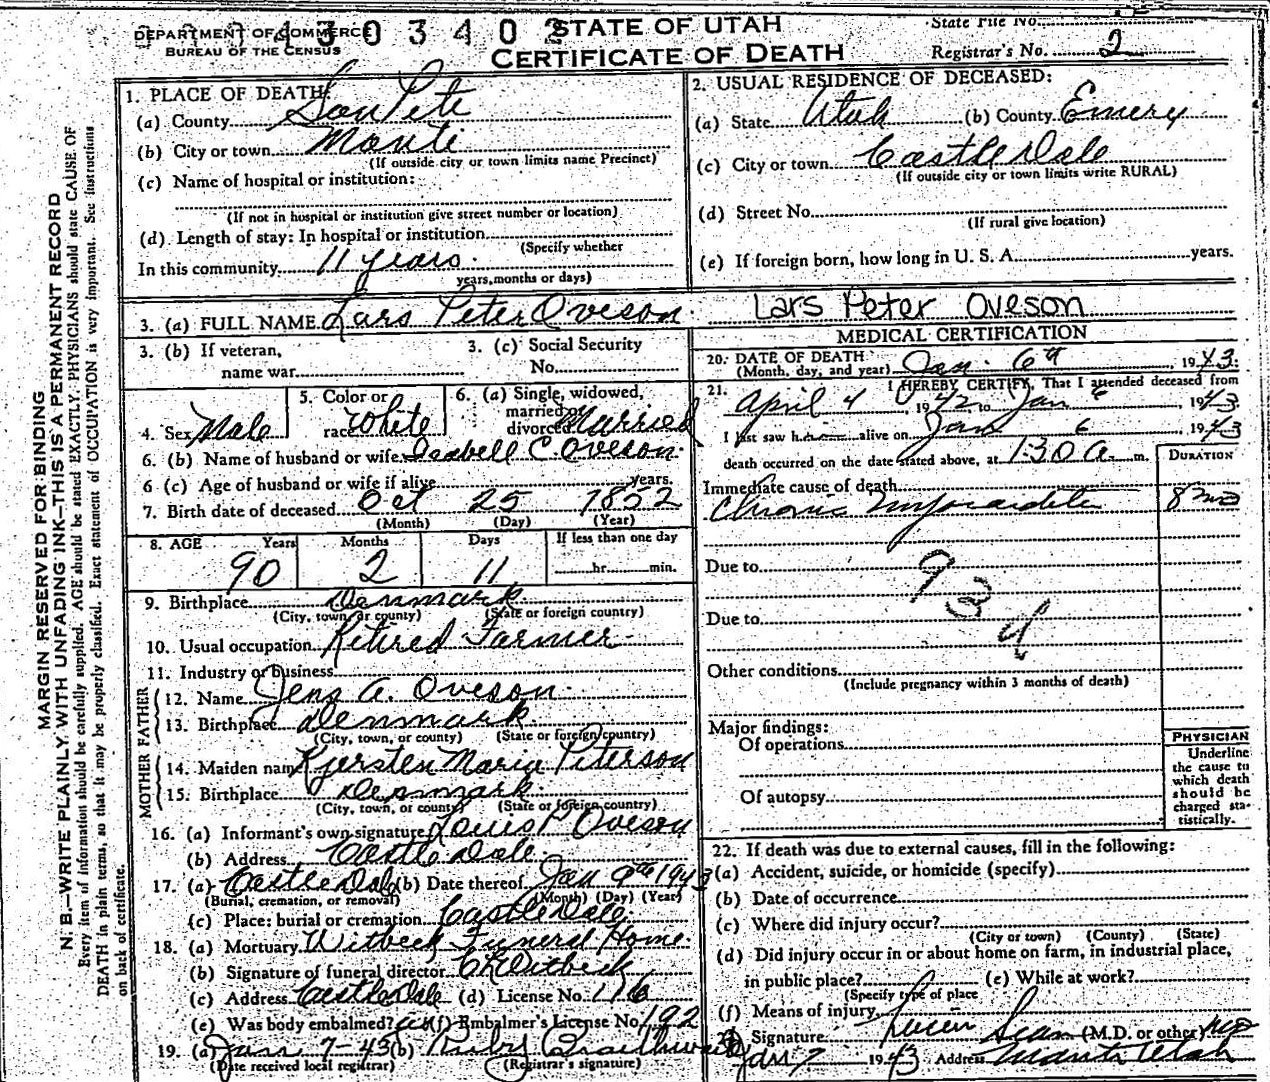 DEPARTMENT OF COMMERCE
BUREAU OF THE CENSUS
4 3 0 3 4 0 2
STATE OF UTAH
CERTIFICATE OF DEATH
State File No.
Registrar's No. 2
MARGIN RESERVED FOR BINDING
N. B.—WRITE PLAINLY, WITH UNFADING INK—THIS IS A PERMANENT RECORD
Every item of information should be carefully supplied. AGE should be stated EXACTLY. PHYSICIANS should state CAUSE OF
DEATH in plain terms, so that it may be properly classified. Exact statement of OCCUPATION is very important. See instructions
on back of certificate.
1. PLACE OF DEATH
(a) County San Pete
(b) City or town Manti
(If outside city or town limits name Precinct)
(c) Name of hospital or institution:
(If not in hospital or institution give street number or location)
(d) Length of stay: In hospital or institution
(Specify whether
In this community 11 years
years, months or days)
2. USUAL RESIDENCE OF DECEASED:
(a) State Utah (b) County Emery
(c) City or town Castle Dale
(If outside city or town limits write RURAL)
(d) Street No.
(If rural give location)
(e) If foreign born, how long in U. S. A. years.
3. (a) FULL NAME Lars Peter Oveson Lars Peter Oveson
3. (b) If veteran,
name war
3. (c) Social Security
No.
4. Sex Male
5. Color or
race White
6. (a) Single, widowed,
married or
divorced Married
6. (b) Name of husband or wife Isabell C. Oveson
6 (c) Age of husband or wife if alive years.
7. Birth date of deceased Oct 25 1852
(Month) (Day) (Year)
8. AGE Years Months Days If less than one day
90 2 11 hr. min.
9. Birthplace Denmark
(City, town, or county) (State or foreign country)
10. Usual occupation Retired Farmer
11. Industry or business
FATHER
12. Name Jens A. Oveson
13. Birthplace Denmark
(City, town, or county) (State or foreign country)
MOTHER
14. Maiden name Kjersten Maria Peterson
15. Birthplace Denmark
(City, town, or county) (State or foreign country)
16. (a) Informant's own signature Louis P Oveson
(b) Address Castle Dale
17. (a) Castle Dale (b) Date thereof Jan 9th 1943
(Burial, cremation, or removal) (Month) (Day) (Year)
(c) Place: burial or cremation Castle Dale
18. (a) Mortuary Witbeck Funeral Home
(b) Signature of funeral director Witbeck
(c) Address Castle Dale (d) License No. 176
(e) Was body embalmed? (f) Embalmer's License No. 192
19. (a) Jan 7-43 (b) Ruby Braithwaite
(Date received local registrar) (Registrar's signature)
MEDICAL CERTIFICATION
20. DATE OF DEATH
(Month, day, and year) Jan. 6th 1943.
21. I HEREBY CERTIFY, That I attended deceased from
April 4, 1942, to Jan 6 1943
I last saw h alive on Jan 6 1943
death occurred on the date stated above, at 1:30 A. m.
DURATION
Immediate cause of death
Chronic Myocarditis 8 mo
Due to
Due to
93d
Other conditions
(Include pregnancy within 3 months of death)
Major findings:
Of operations
Of autopsy
PHYSICIAN
Underline
the cause to
which death
should be
charged sta-
tistically.
22. If death was due to external causes, fill in the following:
(a) Accident, suicide, or homicide (specify)
(b) Date of occurrence
(c) Where did injury occur?
(City or town) (County) (State)
(d) Did injury occur in or about home on farm, in industrial place,
in public place? (e) While at work?
(Specify type of place
(f) Means of injury
Signature Sears (M.D. or other) MD
Jan 7 1943 Address Manti Utah